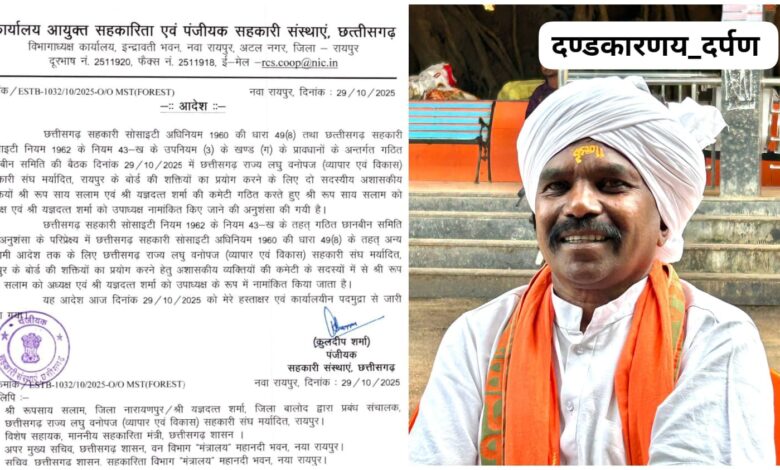 कार्यालय आयुक्त सहकारिता एवं पंजीयक सहकारी संस्थाएं, छत्तीसगढ़
विभागाध्यक्ष कार्यालय, इन्द्रावती भवन, नवा रायपुर, अटल नगर, जिला - रायपुर
दूरभाष नं. 2511920, फैक्स नं. 2511918, ई-मेल -rcs.coop@nic.in
/ESTB-1032/10/2025-O/O MST(FOREST) नवा रायपुर, दिनांक : 29/10/2025
-:: आदेश ::-
छत्तीसगढ़ सहकारी सोसाइटी अधिनियम 1960 की धारा 49(8) तथा छत्तीसगढ़ सहकारी
नियम 1962 के नियम 43-ख के उपनियम (3) के खण्ड (ग) के प्रावधानों के अन्तर्गत गठित
समिति की बैठक दिनांक 29/10/2025 में छत्तीसगढ़ राज्य लघु वनोपज (व्यापार एवं विकास)
संघ मर्यादित, रायपुर के बोर्ड की शक्तियों का प्रयोग करने के लिए दो सदस्यीय अशासकीय
श्री रूप साय सलाम एवं श्री यज्ञदत्त शर्मा की कमेटी गठित करते हुए श्री रूप साय सलाम को
एवं श्री यज्ञदत्त शर्मा को उपाध्यक्ष नामांकित किए जाने की अनुशंसा की गयी है।
छत्तीसगढ़ सहकारी सोसाइटी नियम 1962 के नियम 43-ख के तहत् गठित छानबीन समिति
अनुशंसा के परिप्रेक्ष्य में छत्तीसगढ़ सहकारी सोसाइटी अधिनियम 1960 की धारा 49(8) के तहत् अन्य
आदेश तक के लिए छत्तीसगढ़ राज्य लघु वनोपज (व्यापार एवं विकास) सहकारी संघ मर्यादित,
के बोर्ड की शक्तियों का प्रयोग करने हेतु अशासकीय व्यक्तियों की कमेटी के सदस्यों में से श्री रूप
सलाम को अध्यक्ष एवं श्री यज्ञदत्त शर्मा को उपाध्यक्ष के रूप में नामांकित किया जाता है।
यह आदेश आज दिनांक 29/10/2025 को मेरे हस्ताक्षर एवं कार्यालयीन पदमुद्रा से जारी
गया।
(कुलदीप शर्मा)
पंजीयक
सहकारी संस्थाएं, छत्तीसगढ़
/ESTB-1032/10/2025-O/O MST(FOREST) नवा रायपुर, दिनांक : 29/10/2025
श्री रूपसाय सलाम, जिला नारायणपुर/श्री यज्ञदत्त शर्मा, जिला बालोद द्वारा प्रबंध संचालक,
छत्तीसगढ़ राज्य लघु वनोपज (व्यापार एवं विकास) सहकारी संघ मर्यादित, रायपुर।
विशेष सहायक, माननीय सहकारिता मंत्री, छत्तीसगढ़ शासन ।
अपर मुख्य सचिव, छत्तीसगढ़ शासन, वन विभाग "मंत्रालय" महानदी भवन, नया रायपुर।
सचिव, छत्तीसगढ़ शासन, सहकारिता विभाग "मंत्रालय" महानदी भवन, नया रायपुर।
दण्डकारणय_दर्पण